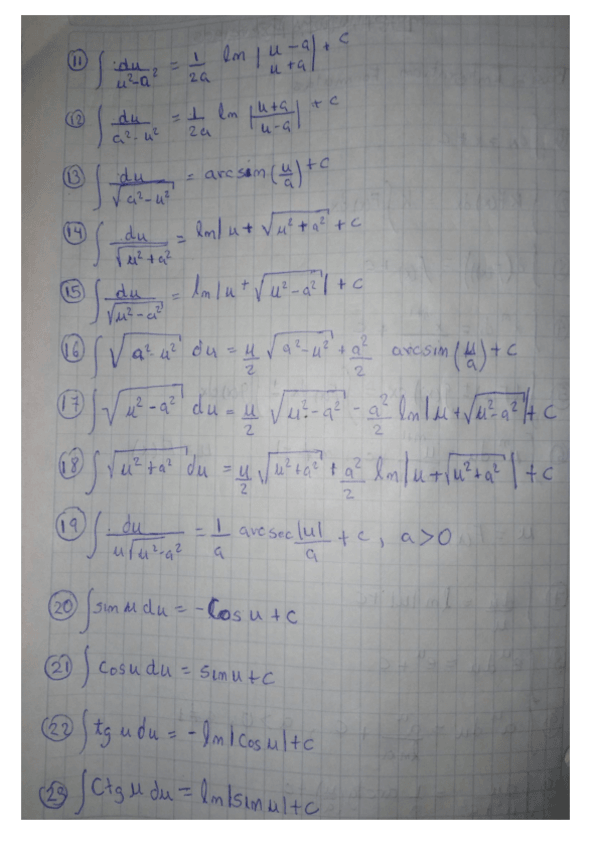 ⑪ ∫ du/(u²-a²) = 1/(2a) ln |(u-a)/(u+a)| + c
⑫ ∫ du/(a²-u²) = 1/(2a) ln |(u+a)/(u-a)| + c
⑬ ∫ du/√(a²-u²) = arcsin (u/a) + c
⑭ ∫ du/√(u²+a²) = ln|u+√(u²+a²) + c
⑮ ∫ du/√(u²-a²) = ln|u+√(u²-a²)| + c
⑯ ∫ √(a²-u²) du = u/2 √(a²-u²) + a²/2 arcsin (u/a) + c
⑰ ∫ √(u²-a²) du = u/2 √(u²-a²) - a²/2 ln|u+√(u²-a²)| + c
⑱ ∫ √(u²+a²) du = u/2 √(u²+a²) + a²/2 ln|u+√(u²+a²)| + c
⑲ ∫ du/(u√(u²-a²)) = 1/a arcsec |u|/a + c, a>0
⑳ ∫ sin u du = -Cos u + c
㉑ ∫ cos u du = sen u + c
㉒ ∫ tg u du = -ln|cos u| + c
㉓ ∫ Ctg u du = ln|sin u| + c